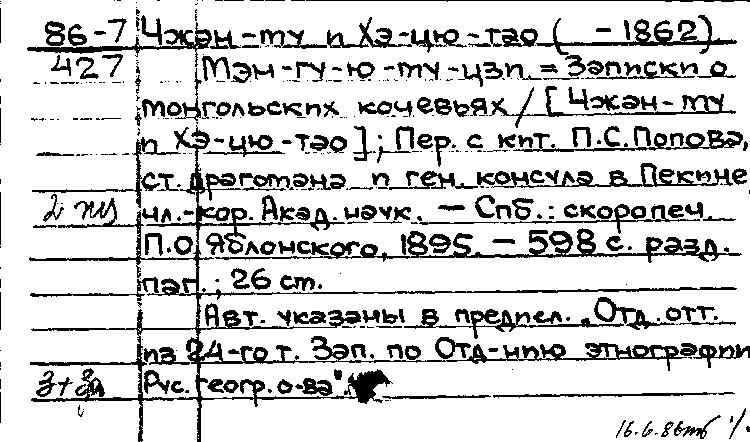 86-7 Чжэн-му и Хэ-цю-тао ( -1862).
427 Мэн-гу-ю-му-цзи = Записки о
монгольских кочевьях / [Чжэн-му
и Хэ-цю-тао]; Пер. с кит. П.С.Попова,
ст. драгомана и ген. консула в Пекине,
чл.-кор. Акад. наук. — Спб.: скоропеч.
П.О. Яблонского, 1895. — 598 с. разд.
паг.; 26 см.
Авт. указаны в предисл. „Отд. отт.
из 24-го т. Зап. по Отд-нию этнографии
Рус. геогр. о-ва".
16.6.86